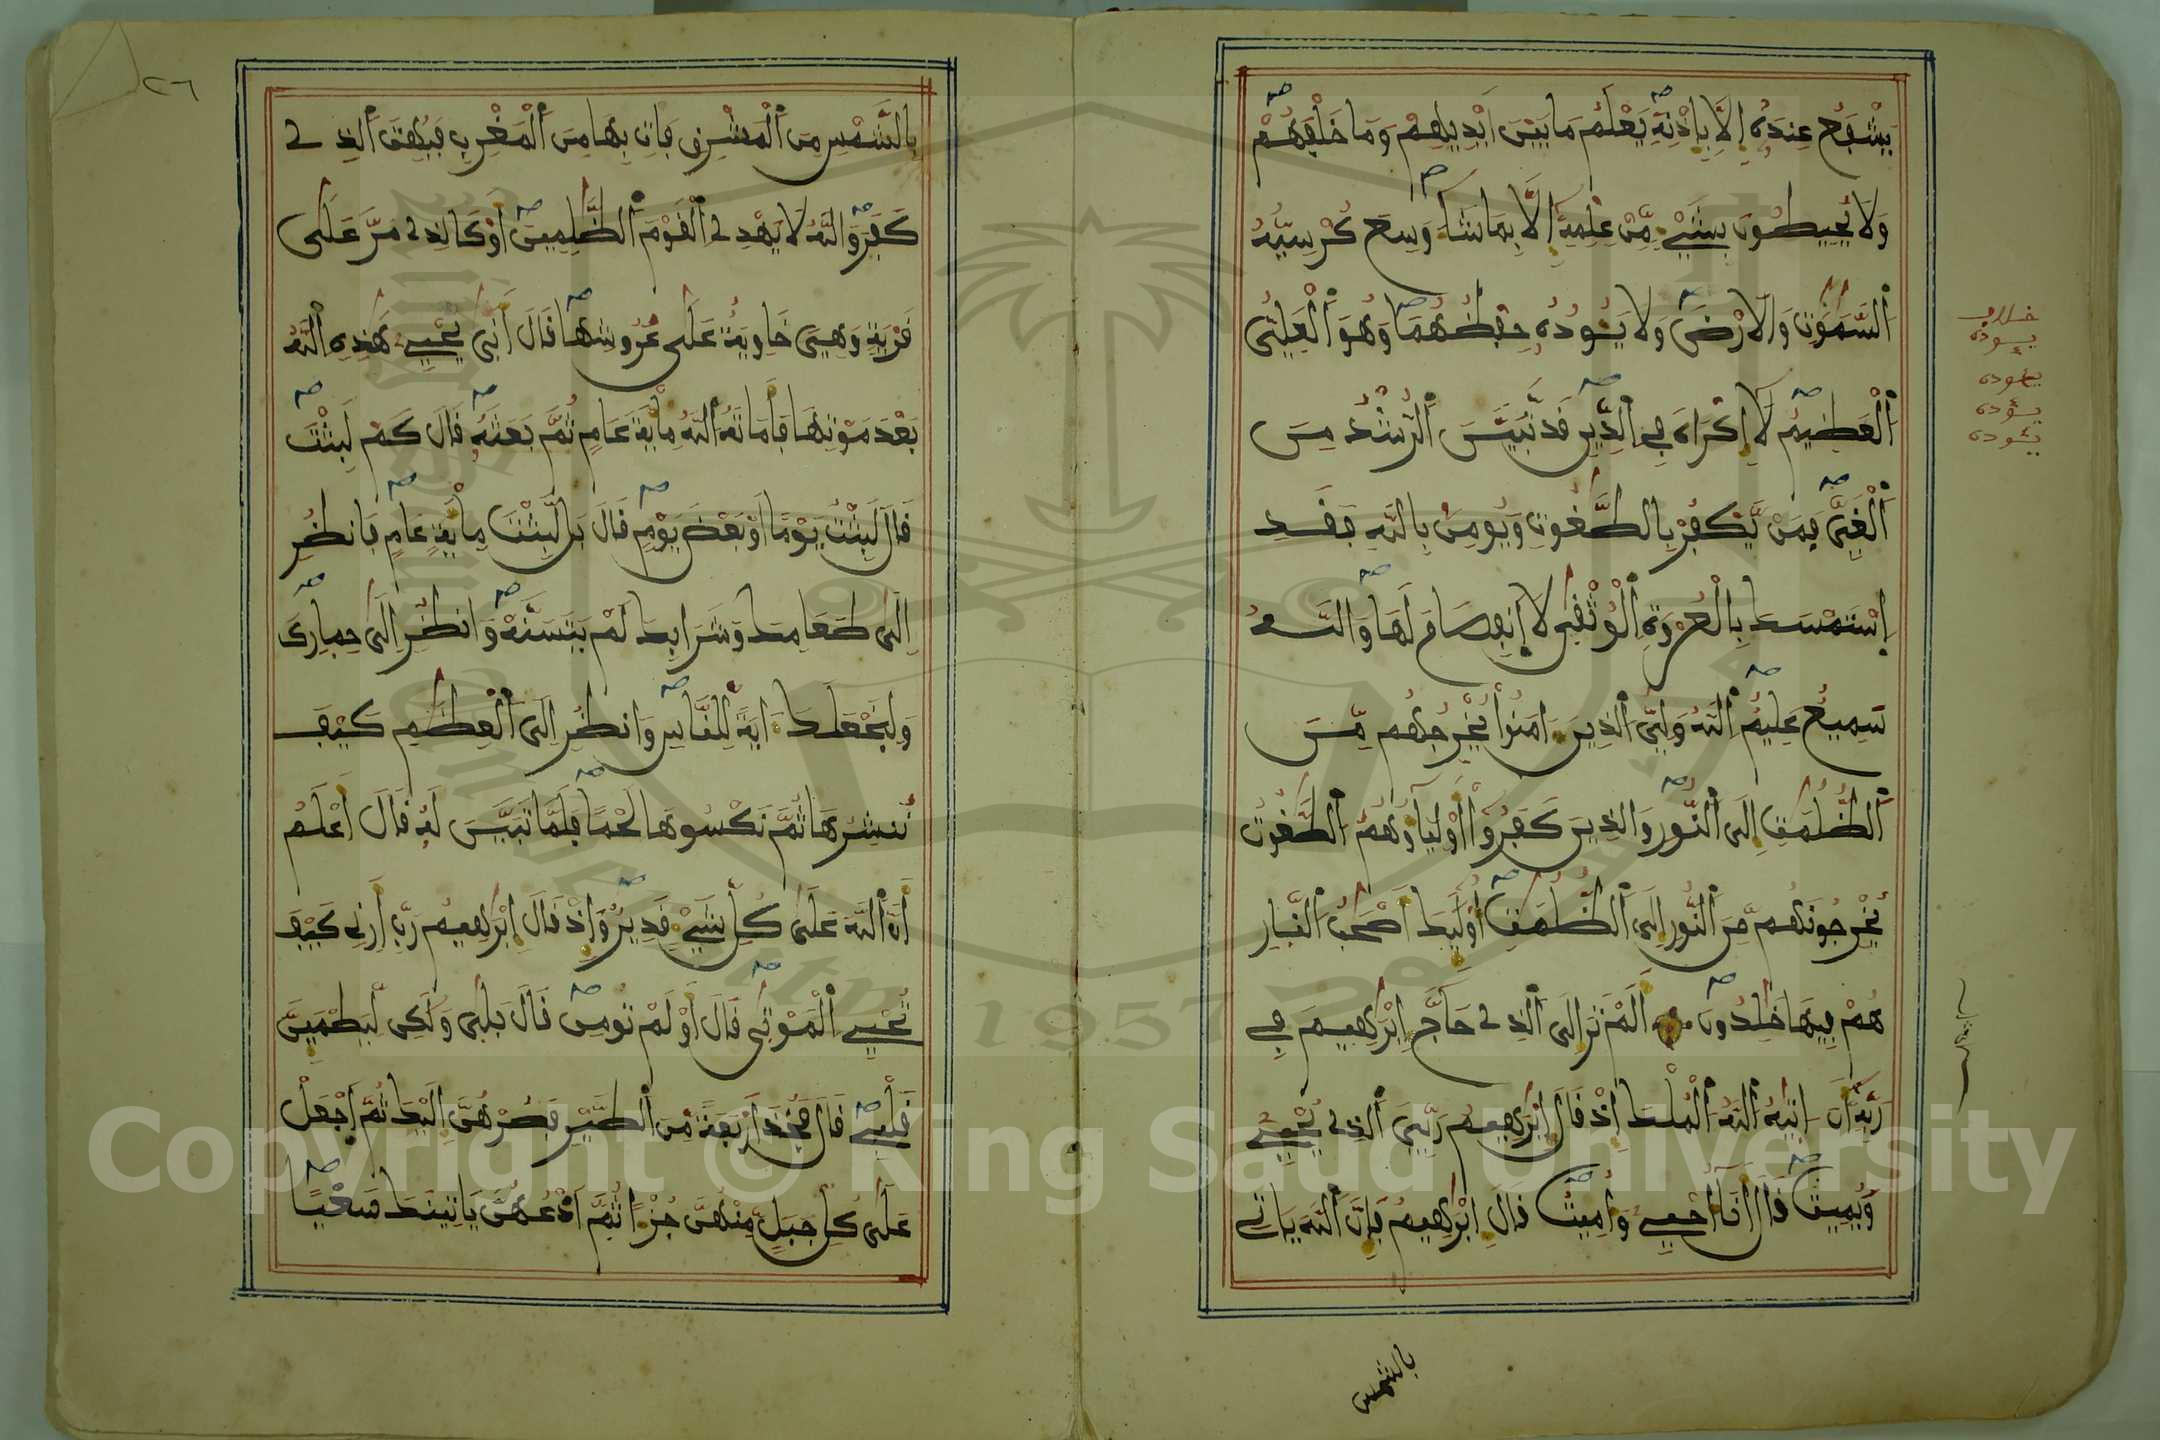 يَشْفَعُ عِندَهُ إِلَّا بِإِذْنِهِ يَعْلَمُ مَا بَيْنَ أَيْدِيهِمْ وَمَا خَلْفَهُمْ
وَلَا يُحِيطُونَ بِشَيْءٍ مِّنْ عِلْمِهِ إِلَّا بِمَا شَاءَ وَسِعَ كُرْسِيُّهُ
السَّمَٰوَٰتِ وَالْأَرْضَ وَلَا يَـُٔودُهُ حِفْظُهُمَا وَهُوَ الْعَلِيُّ
الْعَظِيمُ لَا إِكْرَاهَ فِي الدِّينِ قَد تَّبَيَّنَ الرُّشْدُ مِنَ
الْغَيِّ فَمَنْ يَّكْفُرْ بِالطَّٰغُوتِ وَيُومِنْ بِاللَّهِ فَقَدِ
اسْتَمْسَكَ بِالْعُرْوَةِ الْوُثْقَىٰ لَا انفِصَامَ لَهَا وَاللَّهُ
سَمِيعٌ عَلِيمٌ اللَّهُ وَلِيُّ الَّذِينَ ءَامَنُوا يُخْرِجُهُم مِّنَ
الظُّلُمَٰتِ إِلَى النُّورِ وَالَّذِينَ كَفَرُوا أَوْلِيَاؤُهُمُ الطَّٰغُوتُ
يُخْرِجُونَهُم مِّنَ النُّورِ إِلَى الظُّلُمَٰتِ أُوْلَٰئِكَ أَصْحَٰبُ النَّارِ
هُمْ فِيهَا خَٰلِدُونَ أَلَمْ تَرَ إِلَى الَّذِي حَاجَّ إِبْرَٰهِيمَ فِي
رَبِّهِ أَنْ ءَاتَيٰهُ اللَّهُ الْمُلْكَ إِذْ قَالَ إِبْرَٰهِيمُ رَبِّيَ الَّذِي يُحْيِي
وَيُمِيتُ قَالَ أَنَا أُحْيِي وَأُمِيتُ قَالَ إِبْرَٰهِيمُ فَإِنَّ اللَّهَ يَاتِي
بالشمس
يـٔوده
٢٦
بِالشَّمْسِ مِنَ الْمَشْرِقِ فَاتِ بِهَا مِنَ الْمَغْرِبِ فَبُهِتَ الَّذِي
كَفَرَ وَاللَّهُ لَا يَهْدِي الْقَوْمَ الظَّٰلِمِينَ أَوْ كَالَّذِي مَرَّ عَلَىٰ
قَرْيَةٍ وَهِيَ خَاوِيَةٌ عَلَىٰ عُرُوشِهَا قَالَ أَنَّىٰ يُحْيِي هَٰذِهِ اللَّهُ
بَعْدَ مَوْتِهَا فَأَمَاتَهُ اللَّهُ مِائَةَ عَامٍ ثُمَّ بَعَثَهُ قَالَ كَمْ لَبِثْتَ
قَالَ لَبِثْتُ يَوْمًا أَوْ بَعْضَ يَوْمٍ قَالَ بَل لَّبِثْتَ مِائَةَ عَامٍ فَانظُرِ
إِلَىٰ طَعَامِكَ وَشَرَابِكَ لَمْ يَتَسَنَّهْ وَانظُرِ إِلَىٰ حِمَارِكَ
وَلِنَجْعَلَكَ ءَايَةً لِّلنَّاسِ وَانظُرِ إِلَى الْعِظَٰمِ كَيْفَ
نُنشِرُهَا ثُمَّ نَكْسُوهَا لَحْمًا فَلَمَّا تَبَيَّنَ لَهُ قَالَ أَعْلَمُ
أَنَّ اللَّهَ عَلَىٰ كُلِّ شَيْءٍ قَدِيرٌ وَإِذْ قَالَ إِبْرَٰهِيمُ رَبِّ أَرِنِي كَيْفَ
تُحْيِي الْمَوْتَىٰ قَالَ أَوَلَمْ تُومِن قَالَ بَلَىٰ وَلَٰكِن لِّيَطْمَئِنَّ
قَلْبِي قَالَ فَخُذْ أَرْبَعَةً مِّنَ الطَّيْرِ فَصُرْهُنَّ إِلَيْكَ ثُمَّ اجْعَلْ
عَلَىٰ كُلِّ جَبَلٍ مِّنْهُنَّ جُزْءًا ثُمَّ ادْعُهُنَّ يَاتِينَكَ سَعْيًا
1957
Copyright © King Saud University